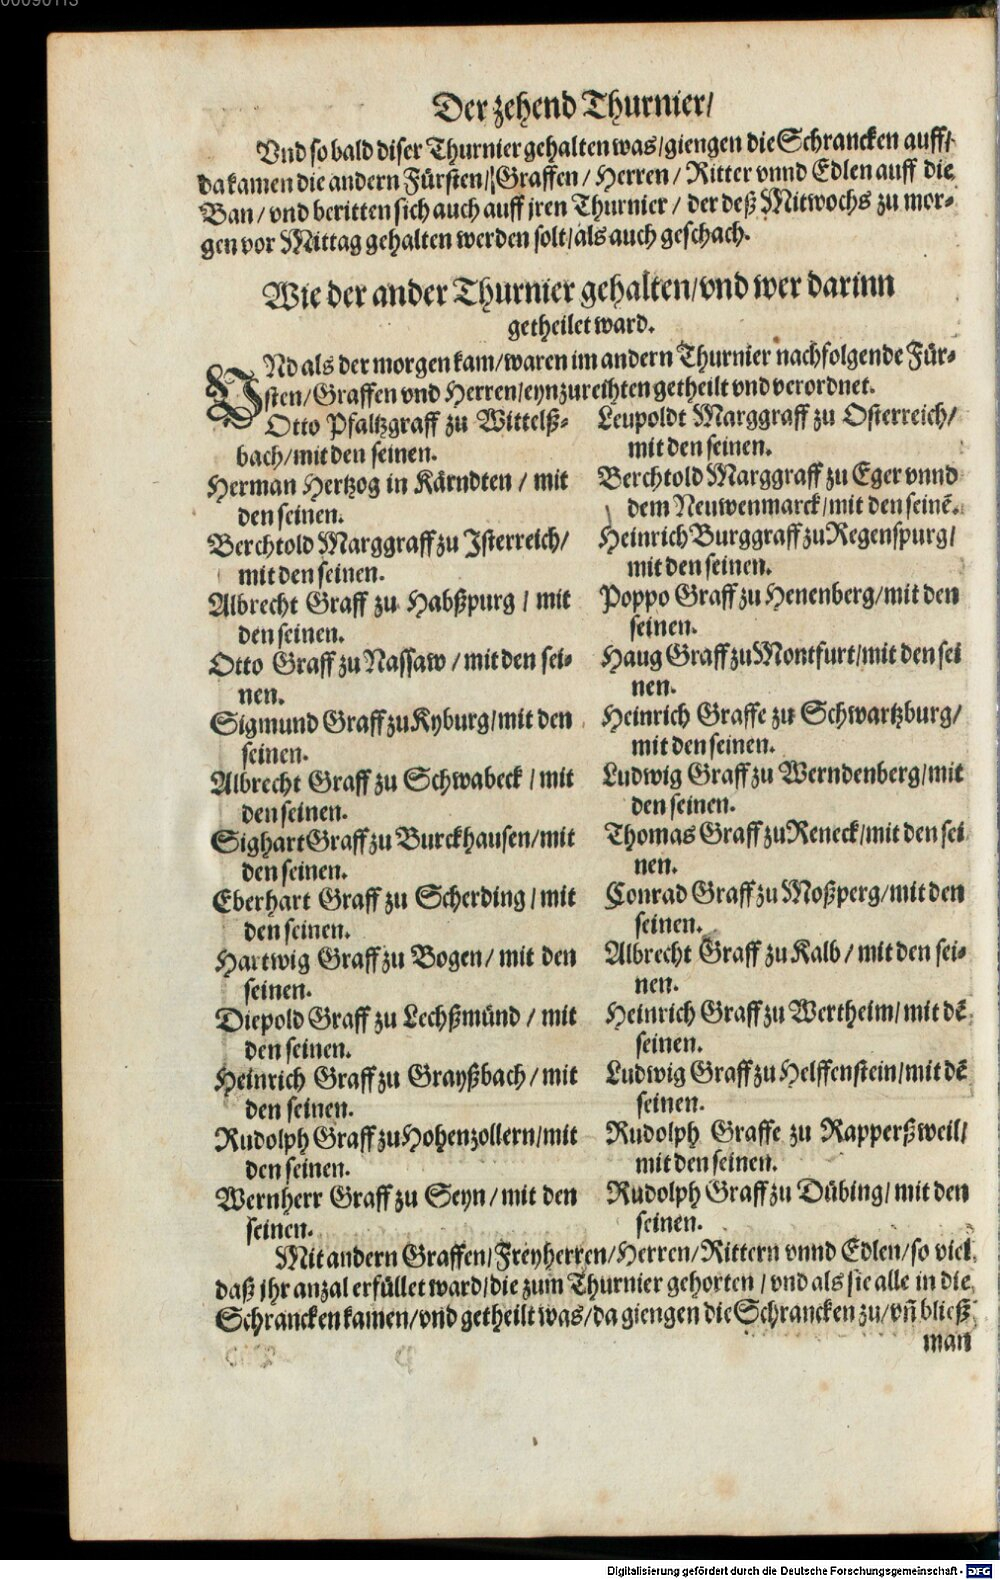 Der zehend Thurnier/
Vnd so bald diser Thurnier gehalten was/giengen die Schrancken auff/
da kamen die andern Fürsten/Graffen/Herren/Ritter vnnd Edlen auff die
Ban/vnd beritten sich auch auff jren Thurnier/der deß Mitwochs zu mor-
gen vor Mittag gehalten werden solt/als auch geschach.
Wie der ander Thurnier gehalten/vnd wer darinn
getheilet ward.
VNd als der morgen kam/waren im andern Thurnier nachfolgende Für-
sten/Graffen vnd Herren/eynzureihten getheilt vnd verordnet.
Otto Pfaltzgraff zu Wittelß-
bach/mit den seinen.
Herman Hertzog in Kärndten/mit
den seinen.
Berchtold Marggraff zu Isterreich/
mit den seinen.
Albrecht Graff zu Habßpurg/mit
den seinen.
Otto Graff zu Nassaw/mit den sei-
nen.
Sigmund Graff zu Kyburg/mit den
seinen.
Albrecht Graff zu Schwabeck/mit
den seinen.
Sighart Graff zu Burckhausen/mit
den seinen.
Eberhart Graff zu Scherding/mit
den seinen.
Hartwig Graff zu Bogen/mit den
seinen.
Diepold Graff zu Lechßmünd/mit
den seinen.
Heinrich Graff zu Grayßbach/mit
den seinen.
Rudolph Graff zu Hohenzollern/mit
den seinen.
Wernherr Graff zu Seyn/mit den
seinen.
Leupoldt Marggraff zu Osterreich/
mit den seinen.
Berchtold Marggraff zu Eger vnnd
dem Neuwenmarck/mit den seinē.
Heinrich Burggraff zu Regenspurg/
mit den seinen.
Poppo Graff zu Henenberg/mit den
seinen.
Haug Graff zu Montfurt/mit den sei
nen.
Heinrich Graffe zu Schwartzburg/
mit den seinen.
Ludwig Graff zu Werndenberg/mit
den seinen.
Thomas Graff zu Reneck/mit den sei
nen.
Conrad Graff zu Moßperg/mit den
seinen.
Albrecht Graff zu Kalb/mit den sei-
nen.
Heinrich Graff zu Wertheim/mit dē
seinen.
Ludwig Graff zu Helffenstein/mit dē
seinen.
Rudolph Graffe zu Rapperßweil/
mit den seinen.
Rudolph Graff zu Dübing/mit den
seinen.
Mit andern Graffen/Freyherren/Herren/Rittern vnnd Edlen/so viel
daß jhr anzal erfüllet ward/die zum Thurnier gehorten/vnd als sie alle in die
Schrancken kamen/vnd getheilt was/da giengen die Schrancken zu/vñ bließ
man
Digitalisierung gefördert durch die Deutsche Forschungsgemeinschaft - DFG